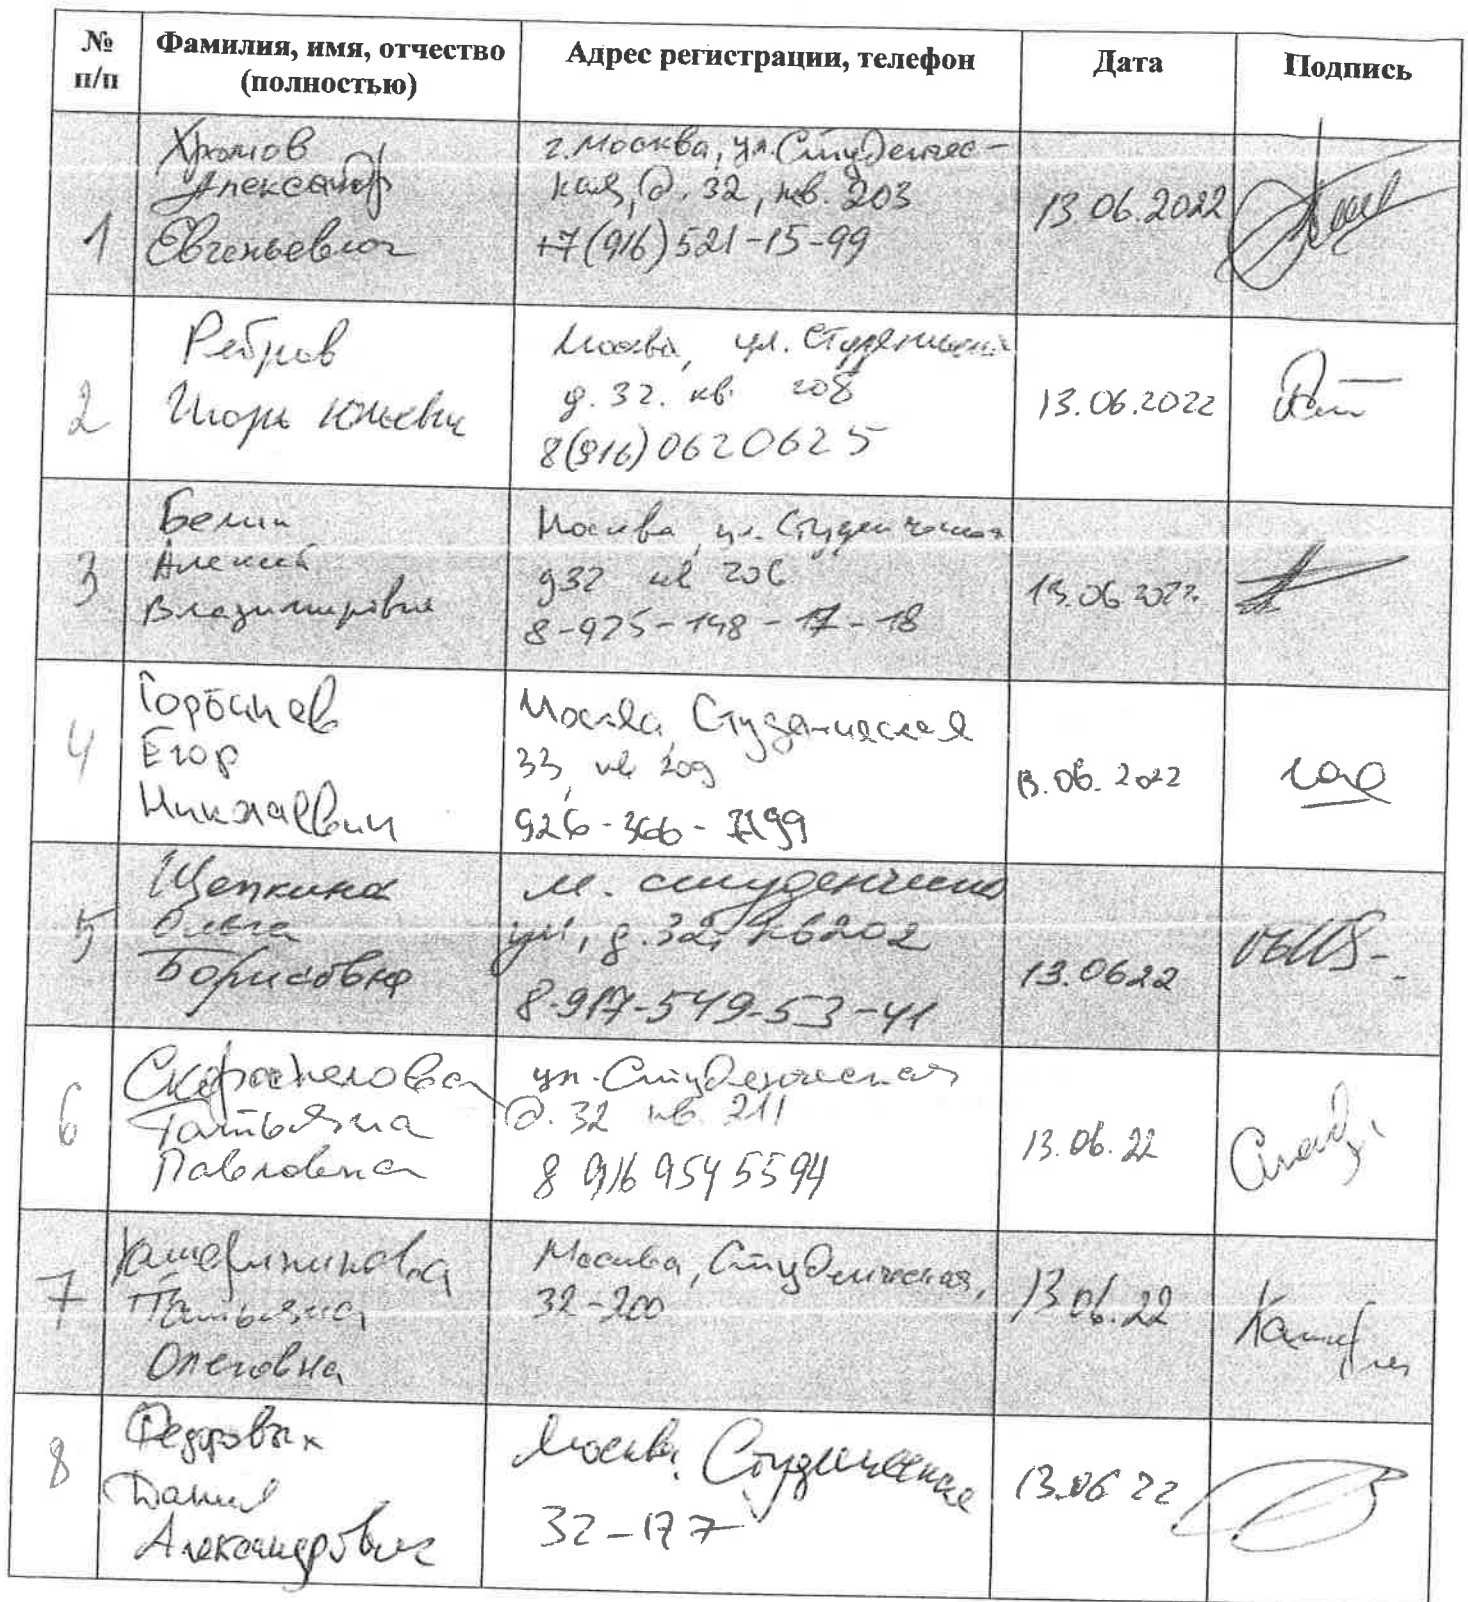 № п/п
Фамилия, имя, отчество (полностью)
Адрес регистрации, телефон
Дата
Подпись
1
Хромов
Александр
Евгеньевич
г. Москва, ул. Студенчес-
кая, д. 32, кв. 203
+7(916)521-15-99
13.06.2022
2
Ребров
Игорь Юльевич
Москва, ул. Студенческая
д. 32. кв. 208
8(916)0620625
13.06.2022
3
Белин
Алексей
Владимирович
Москва, ул. Студенческая
д32 кв 206
8-925-148-17-18
13.06.2022
4
Горбачев
Егор
Николаевич
Москва, Студенческая
33, кв 209
926-366-
13.06.2022
5
Щепкина
Ольга
Борисовна
м. студенческая
ул, д. 32, кв202
8-917-549-53-41
13.0622
6
Скороспелова
Татьяна
Павловна
ул. Студенческая
д. 32 кв. 211
8 916 954 5594
13.06.22
7
Татьяна
Олеговна
Москва, Студенческая,
32-200
13.06.22
8
Федоровых
Данил
Александрович
Москва, Студенческая
32-177
13.06 22